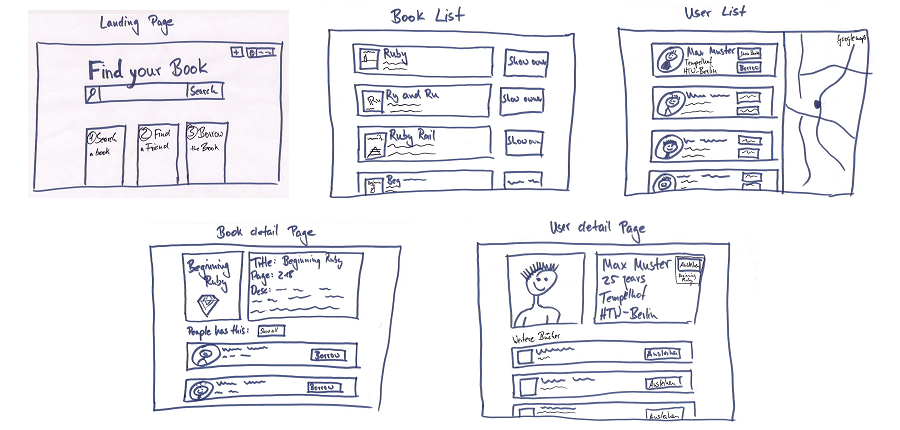 Landing Page
+
Find your Book
Search
1 Search
a book
2 Find
a Friend
3 Borrow
the Book
Book List
Ruby
Show owner
Ry and Ru
Ru
Show owner
Ruby Rail
Show own
Beg
User List
Google maps
Max Muster
Tempelhof
HTW-Berlin
Borrow
Book detail Page
Beginning
Ruby
Title: Beginning Ruby
Page: 218
Desc:
People has this:
Borrow
Borrow
User detail Page
Max Muster
25 years
Tempelhof
HTW-Berlin
Ausleihen
Beginning
Ruby
Weitere Bücher
Ausleihen
Ausleihen
Ausleihen